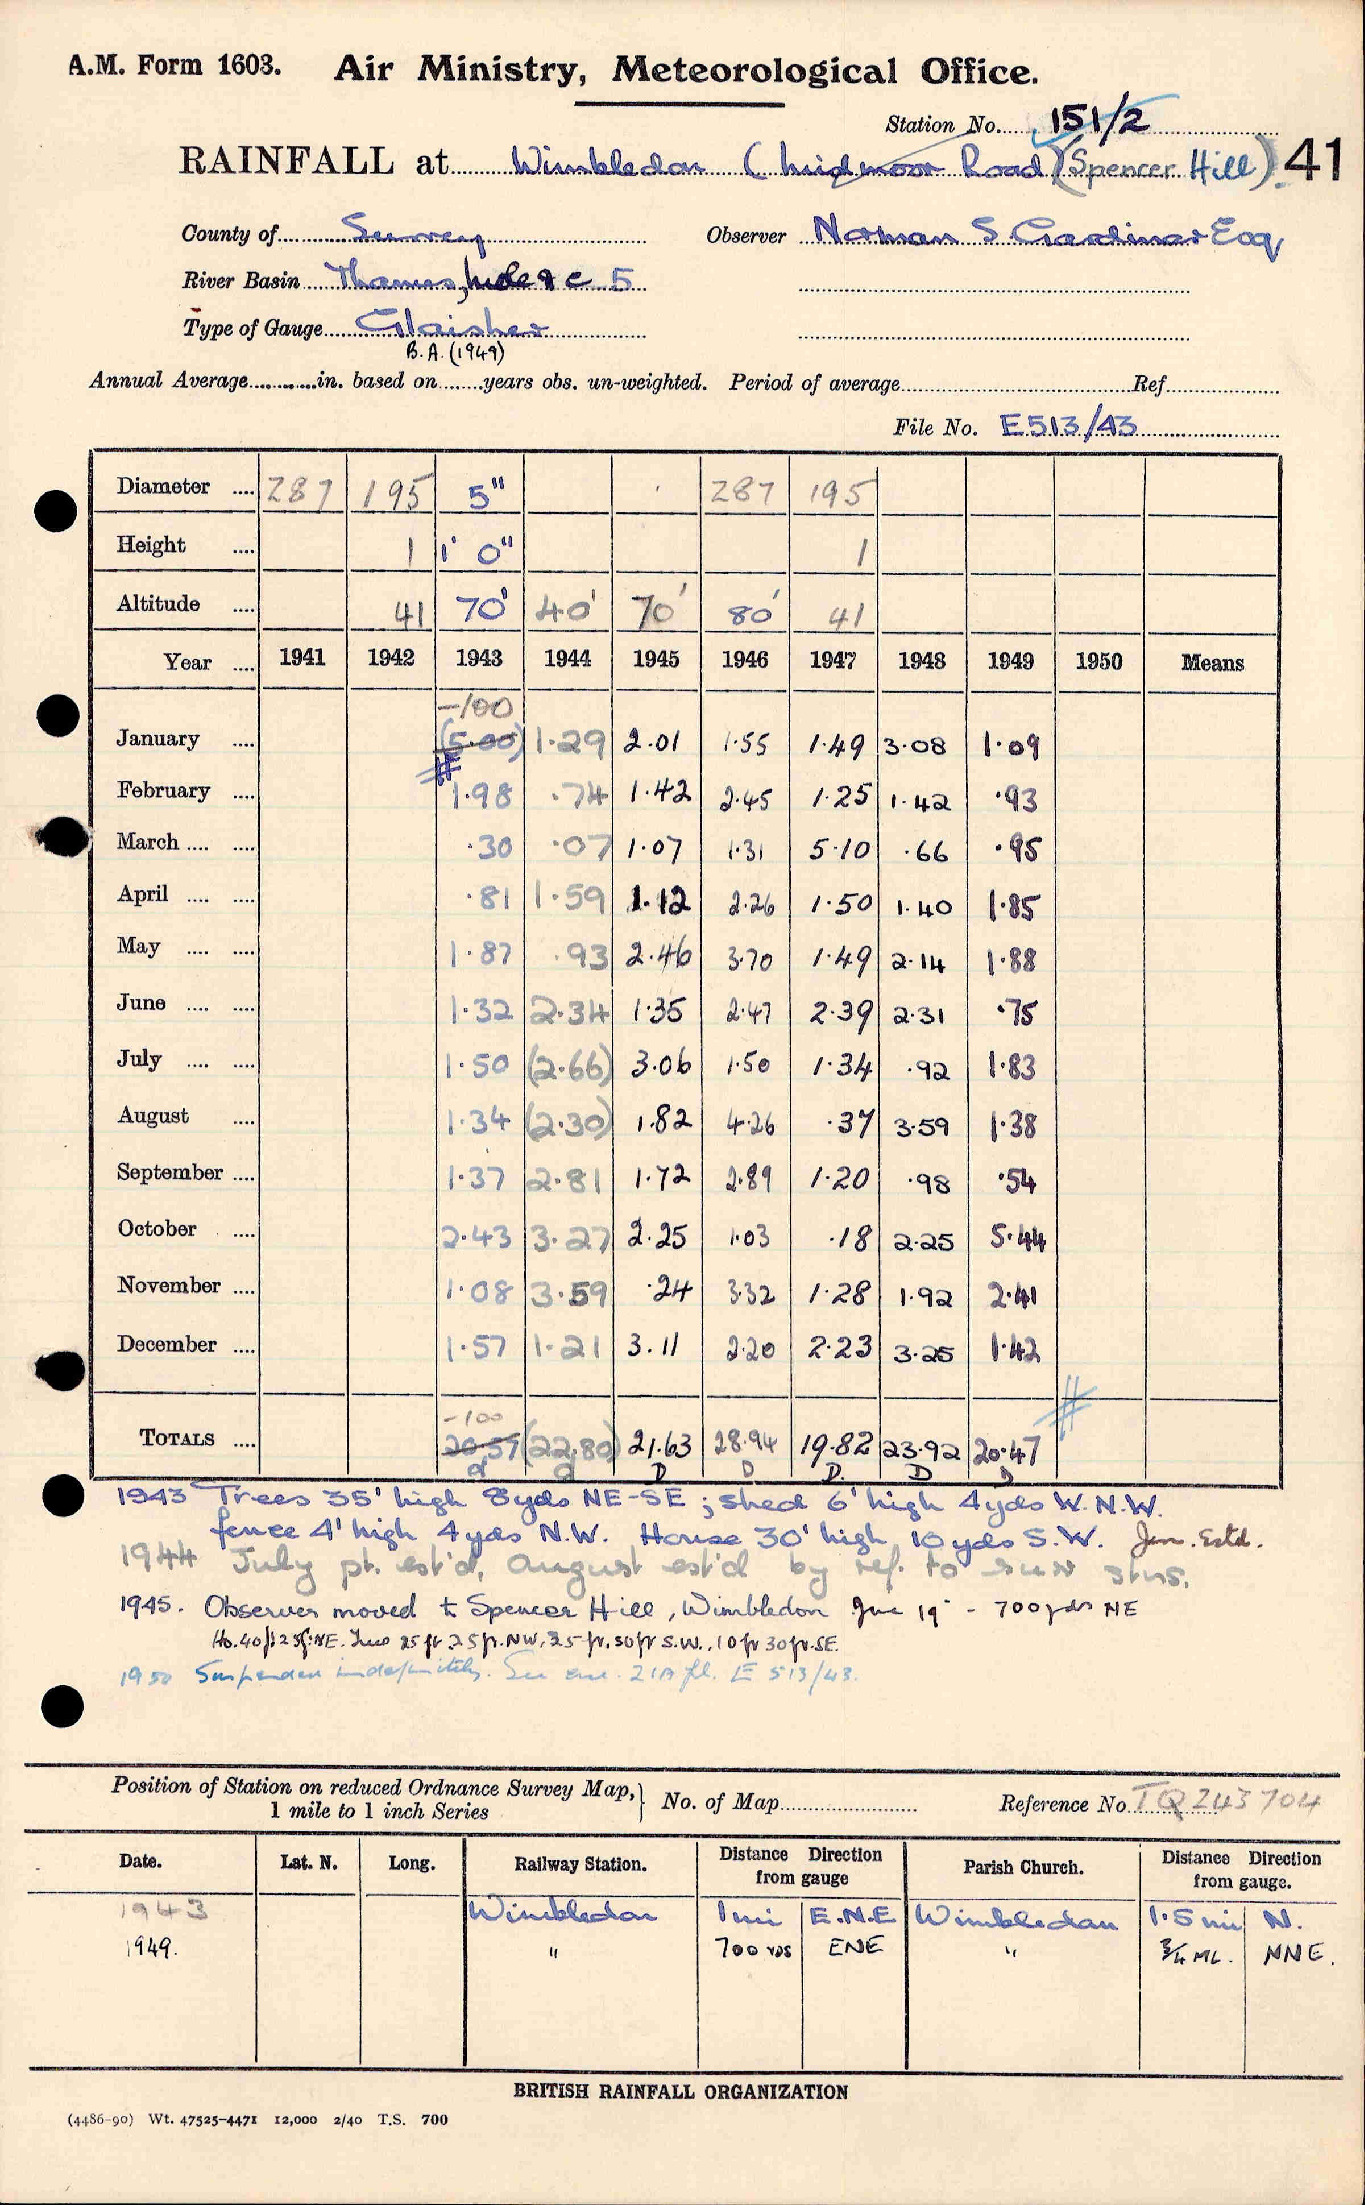 A.M. Form 1603. Air Ministry, Meteorological Office.
Station No. 151/2
RAINFALL at Wimbledon (Midmoor Road) (Spencer Hill) 41
County of Surrey Observer Norman S Gardiner Esq
River Basin Thames, Mole &c 5
Type of Gauge Glaisher
B.A. (1949)
Annual Average in. based on years obs. un-weighted. Period of average Ref
File No. E513/43
Diameter .... 287 195 5" 287 195
Height .... 1 1' 0" 1
Altitude .... 41 70' 40' 70' 80' 41
Year .... 1941 1942 1943 1944 1945 1946 1947 1948 1949 1950 Means
-100
January .... (5.00) 1.29 2.01 1.55 1.49 3.08 1.09
February .... 1.98 .74 1.42 2.45 1.25 1.42 .93
March .... .... .30 .07 1.07 1.31 5.10 .66 .95
April .... .... .81 1.59 1.12 2.26 1.50 1.40 1.85
May .... .... 1.87 .93 2.46 3.70 1.49 2.14 1.88
June .... .... 1.32 2.34 1.35 2.47 2.39 2.31 .75
July .... .... 1.50 (2.66) 3.06 1.50 1.34 .92 1.83
August .... 1.34 (2.30) 1.82 4.26 .37 3.59 1.38
September .... 1.37 2.81 1.72 2.89 1.20 .98 .54
October .... 2.43 3.27 2.25 1.03 .18 2.25 5.44
November .... 1.08 3.59 .24 3.32 1.28 1.92 2.41
December .... 1.57 1.21 3.11 2.20 2.23 3.25 1.42
-100
TOTALS .... 20.57 (22.80) 21.63 28.94 19.82 23.92 20.47
D D D. D D
1943 Trees 35' high 8yds NE-SE; shed 6' high 4yds W.N.W.
fence 4' high 4yds N.W. House 30' high 10yds S.W. Jan. Estd.
1944 July pt. est'd, August est'd by ref. to surr stns.
1945. Observer moved to Spencer Hill, Wimbledon June 19 - 700yds NE
Ho. 40ft 25ft NE. Trees 25ft 25ft NW, 35ft 50ft S.W., 10ft 30ft SE.
1950 Suspended indefinitely. See enc. 21A fl. E 513/43.
Position of Station on reduced Ordnance Survey Map, 1 mile to 1 inch Series } No. of Map Reference No. TQ 243704
Date. Lat. N. Long. Railway Station. Distance Direction from gauge Parish Church. Distance Direction from gauge.
1943 Wimbledon 1 mi E.N.E Wimbledon 1.5 mi N.
1949. " 700 YDS ENE " 3/4 ML. NNE.
BRITISH RAINFALL ORGANIZATION
(4486-90) Wt. 47525-4471 12,000 2/40 T.S. 700